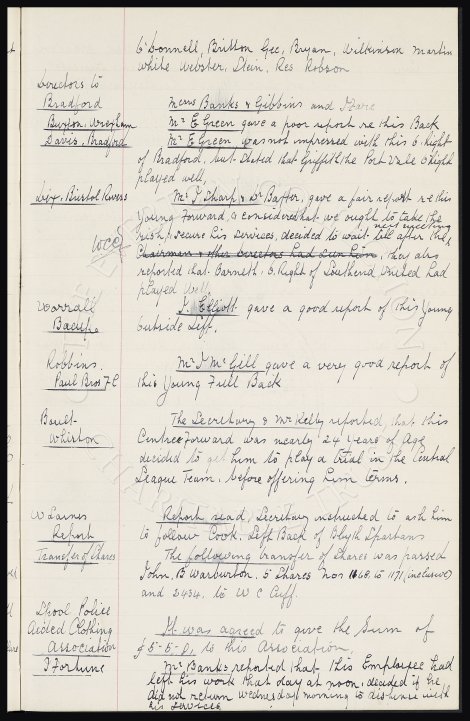 O'Donnell, Britton Geo, Bryan, Wilkinson Martin
White Webster, Stein, Res Robson
Directors to
Bradford
Messrs Banks & Gibbins and
Buxton. Wrexham
Mr E Green gave a poor report re this Back
Davis. Bradford
Mr E Green was not impressed with this O. Right
of Bradford, but stated that Griffith the Port Vale O Right
played well,
Bristol Rovers
Mr J Sharp & Dr Baxter, gave a fair report re this
Young Forward, & considered that we ought to take the
risk & secure his services, decided to wait till after the next meeting
Chairman & other Directors had seen him, they also
reported that Barnett. O. Right of Southend United had
played well
Worrall
Bacup
J. Elliott gave a good report of this Young
Outside Left.
Robbins.
Paul Bros F C
Mr J McGill gave a very good report of
this Young Full Back
Boult
Whiston
The Secretary & Mr Kelly reported, that this
Centre Forward was nearly 24 Years of Age,
decided to get him to play a trial in the Central
League Team, before offering him terms.
W Laines
Report
Report read, Secretary instructed to ask him
to follow Cook. Left Back of Blyth Spartans
Transfer of Shares
The following transfer of Shares was passed
John. B Warburton. 5 Shares Nos 1168 to 1171, (inclusive)
and 2434. to W C Cuff.
L'pool Police
Aided Clothing
Association
It was agreed to give the Sum of
£5-5-0, to this Association.
J Fortune
Mr Banks reported that this Employee had
left his work that day at noon, decided if he
did not return Wednesday morning to dispense with
his services